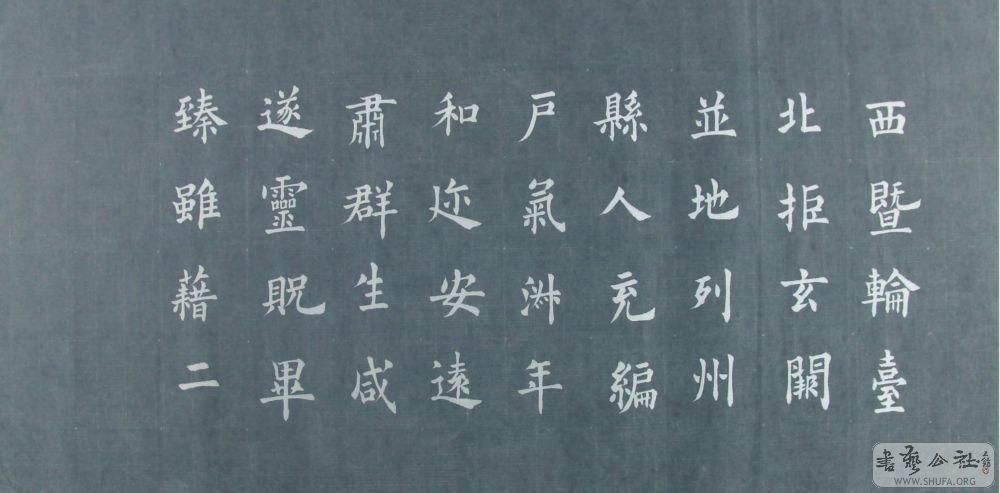 西暨輪臺
北拒玄闕
並地列州
縣人充編
戶氣淋年
和迩安遠
肅群生咸
遂靈貺畢
臻雖藉二
書藝公社
WWW.SHUFA.ORG